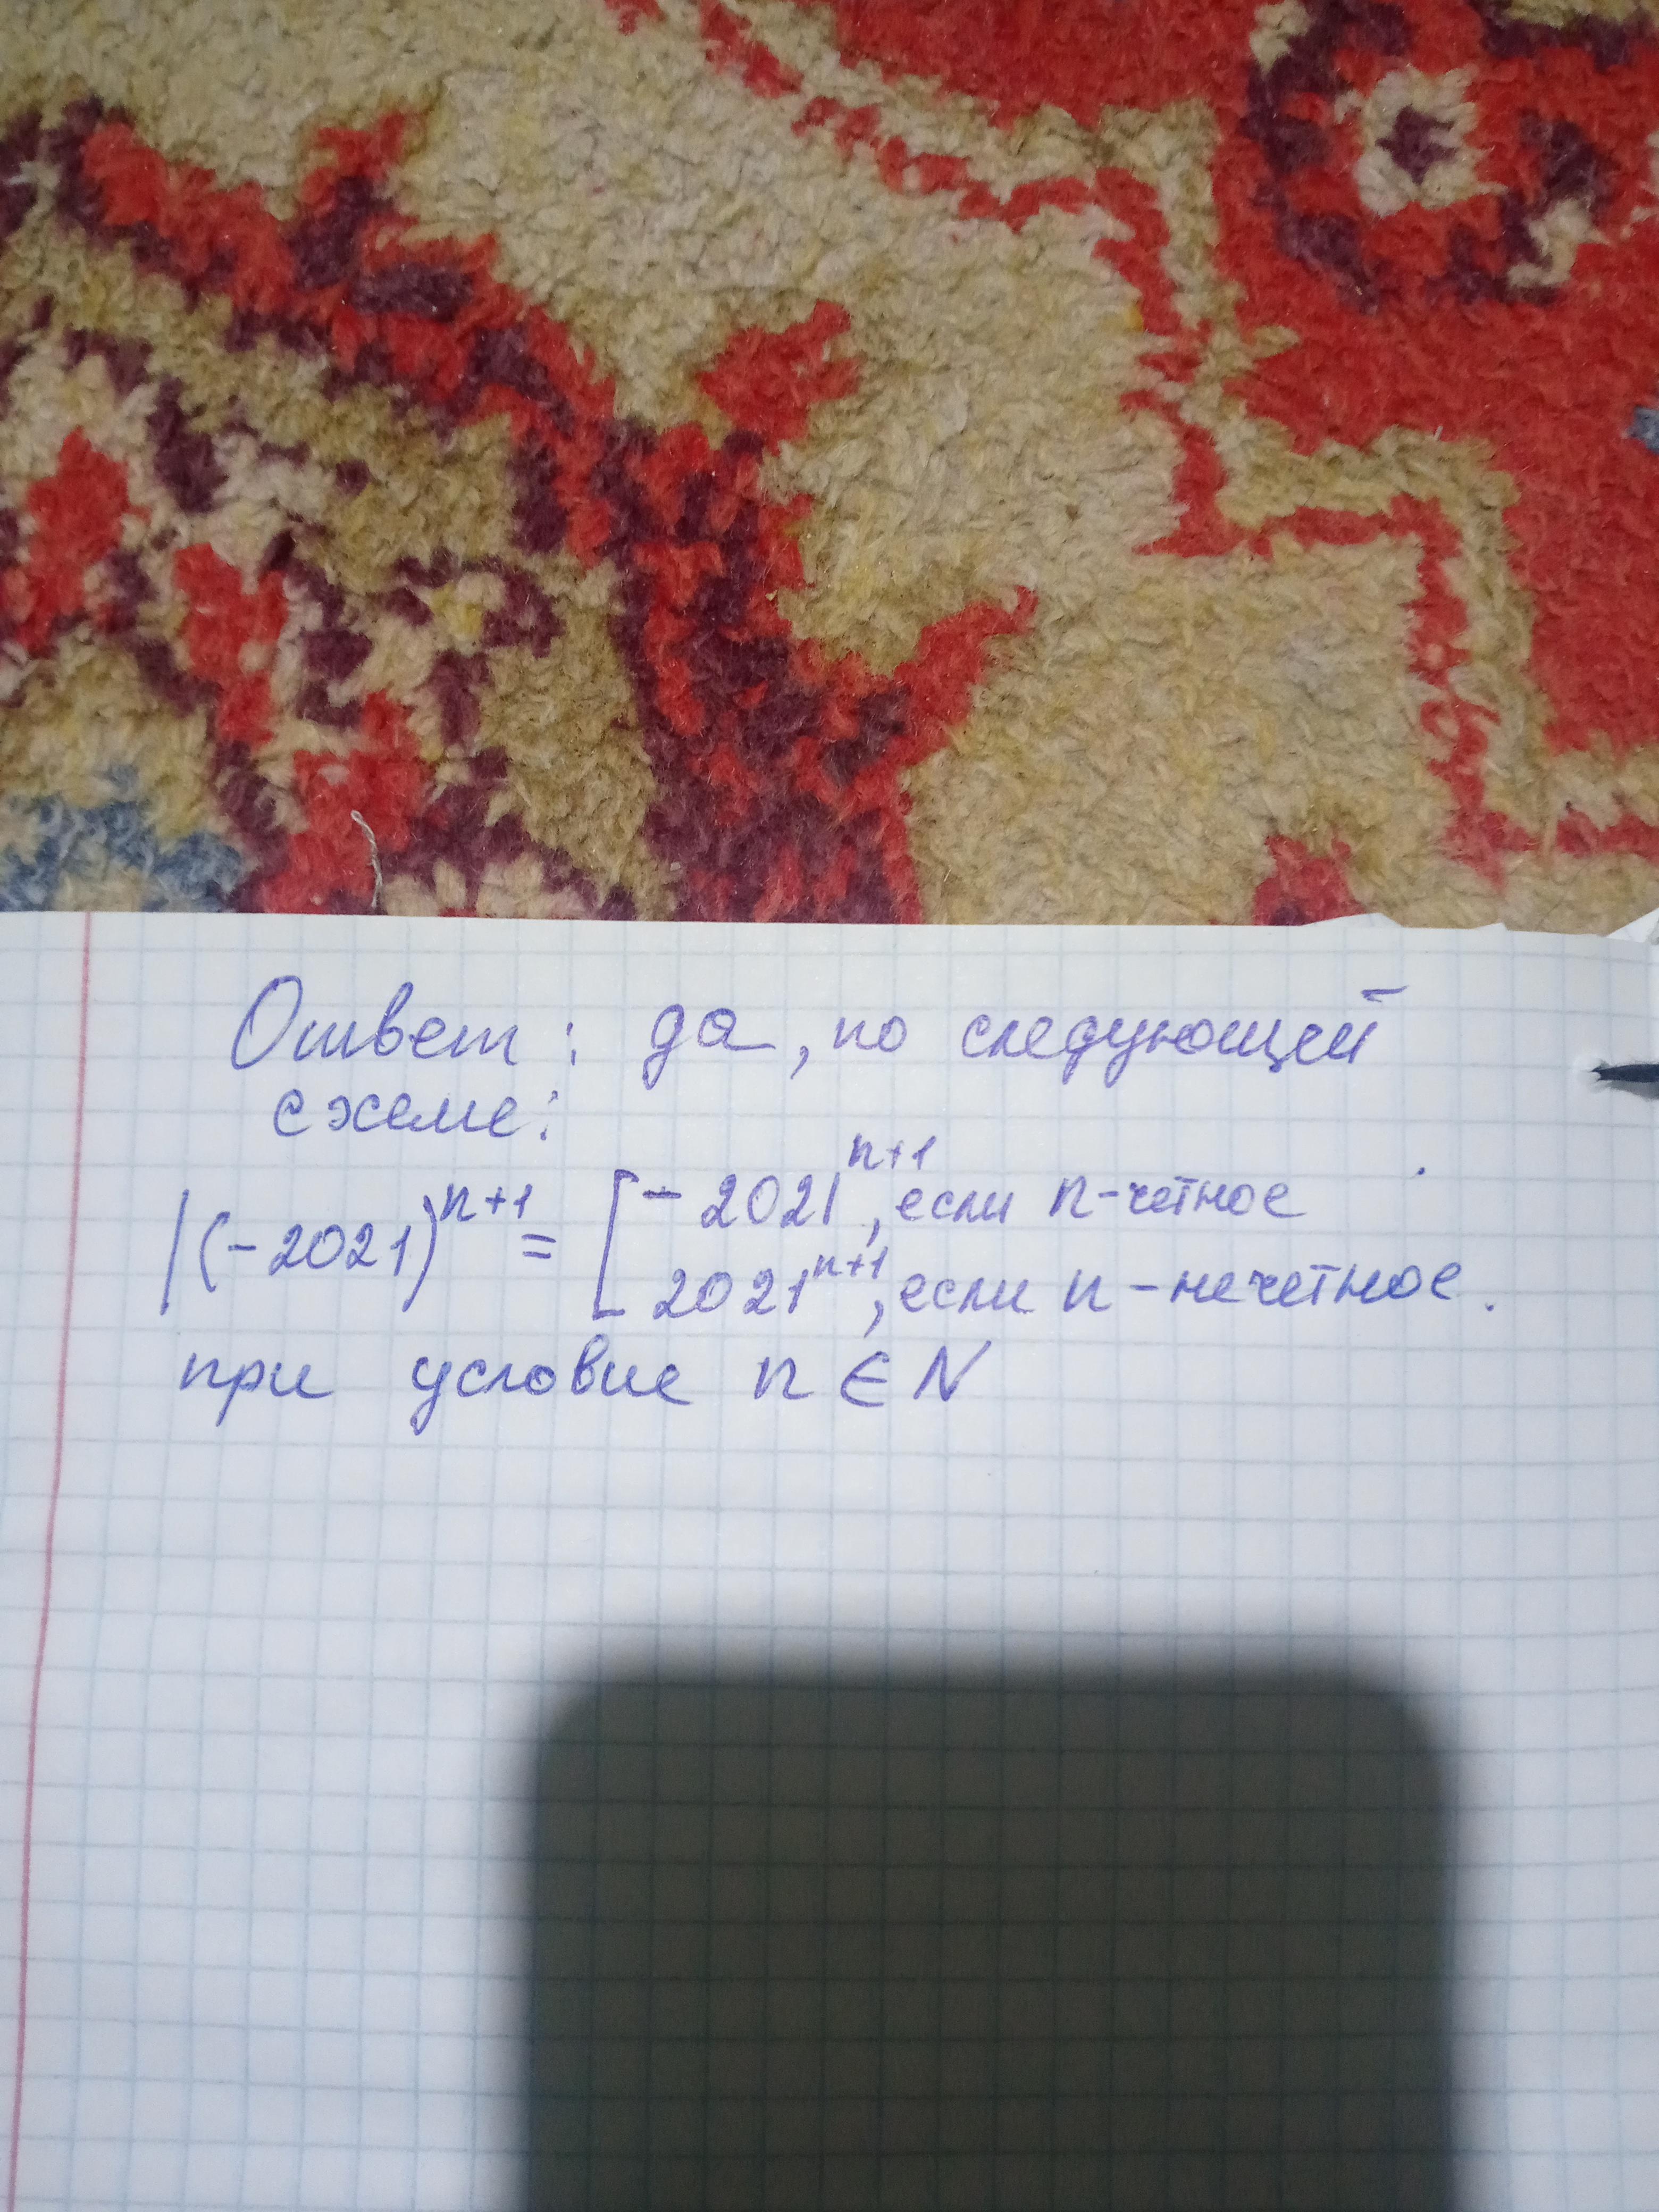 Ответ: да, по следующей
схеме:
|(-2021)^{n+1} = [ -2021^{n+1}, если n-четное
2021^{n+1}, если n-нечетное.
при условие n ∈ N